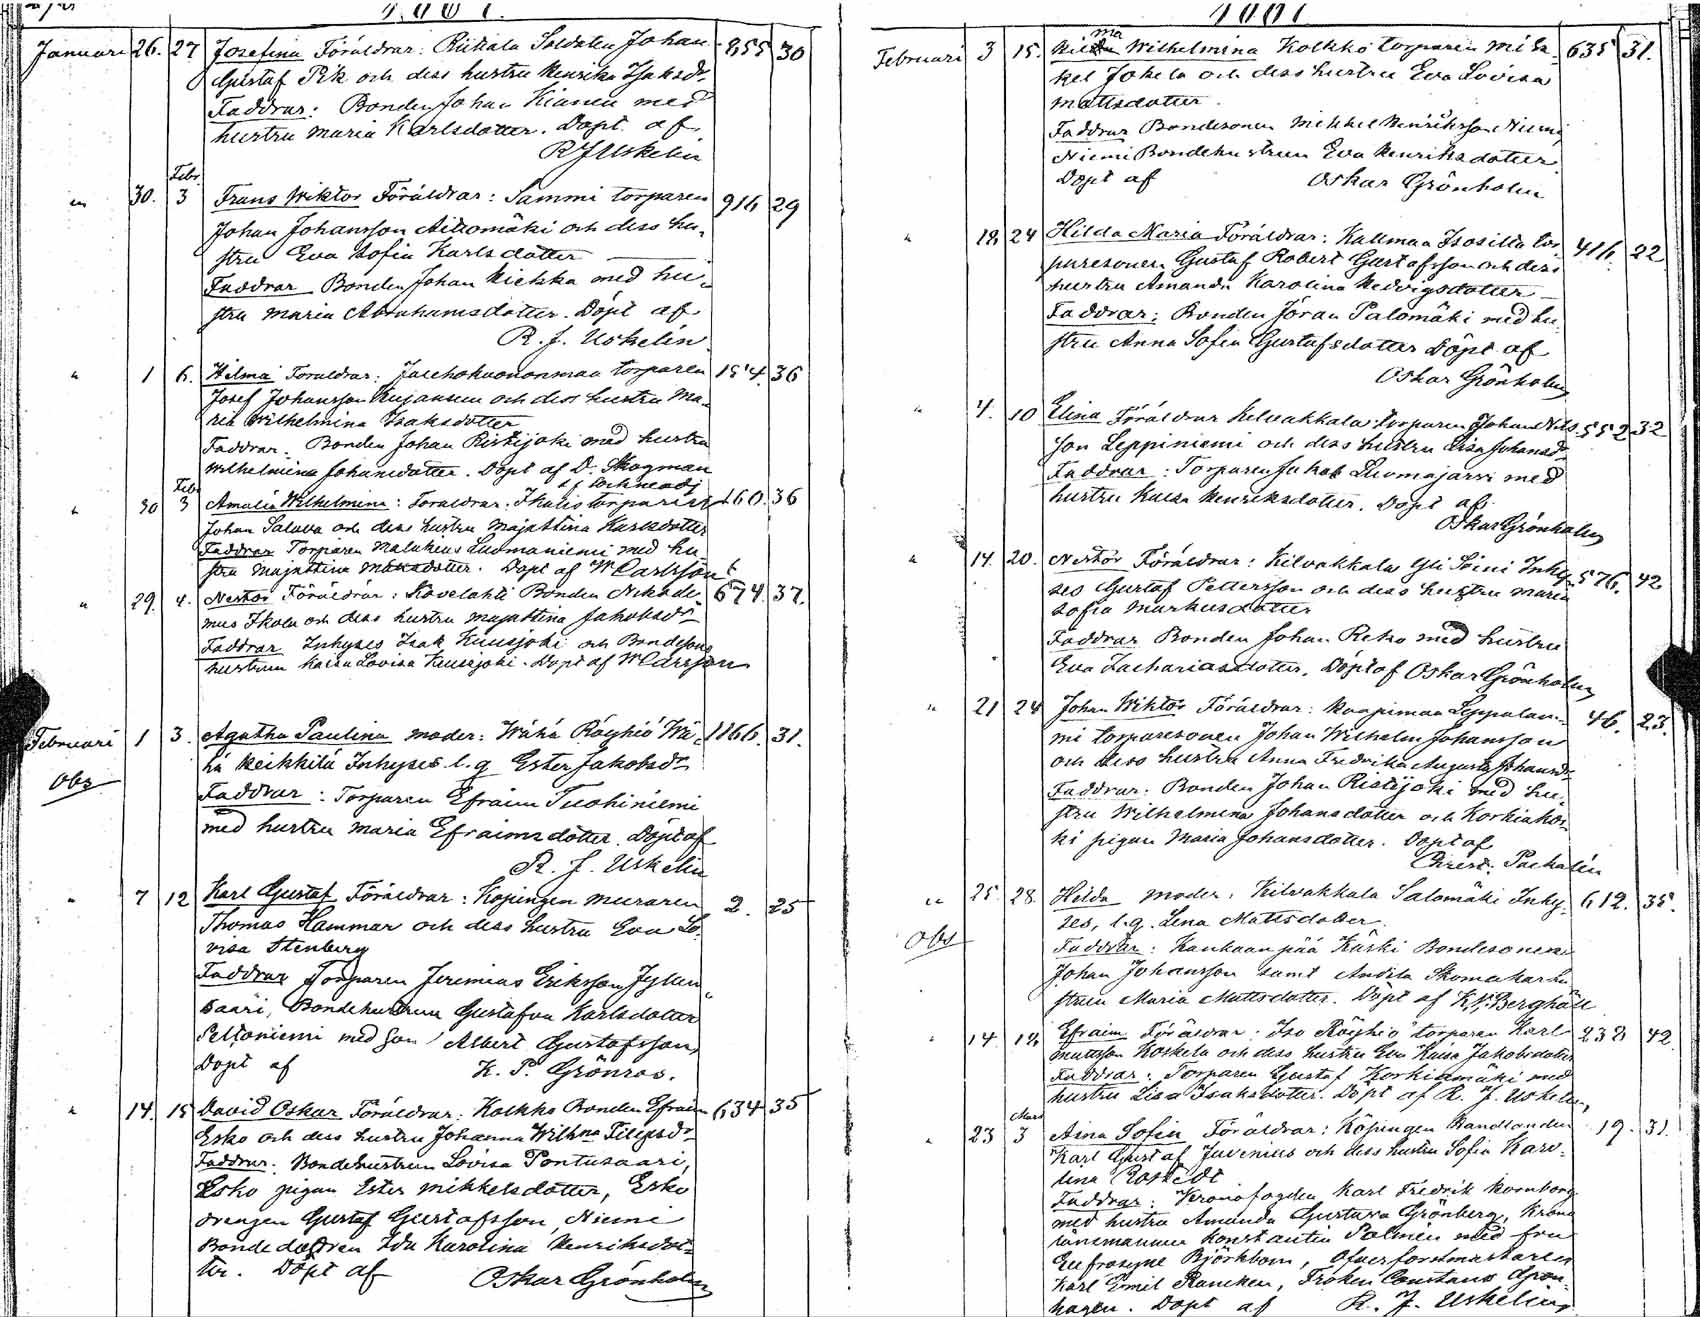 Januari 26. 27 Josefina Föräldrar: Riikala Soldaten Johan 855 30
Gustaf Pik och dess hustru Henrika Isaksdr
Faddrar: Bonden Johan Kianen med
hustru Maria Karlsdotter. Döpt af
R J Uskelin
Febr
30. 3 Frans Wiktor Föräldrar: Sammi torparen 916 29
Johan Johansson Aittomäki och dess hu-
stru Eva Sofia Karlsdotter
Faddrar Bonden Johan Kiehka med hu-
stru Maria Abrahamsdotter. Döpt af
R. J. Uskelin
" 1 6. Hilma Föräldrar: torparen 184. 36
Josef Johansson och dess hustru Ma-
ria Wilhelmina Isaksdotter
Faddrar. Bonden Johan Ristijoki med hustru
Wilhelmina Johansdotter. Döpt af D. Skogman
Febr
" 30 3 Amalia Wilhelmina: Föräldrar: Ikalis torparen 160. 36
Johan Salava och dess hustru Majastina Karlsdotter
Faddrar Torparen Malakias Luomaniemi med hu-
stru Majastina Dopt af W Carlsson
" 29. 4. Nestor Föräldrar: Kovelahti Bonden Nikode- 674. 37.
mus Ikola och dess hustru Majastina Jakobsdr
Faddrar Inhyses Isak Kuusjoki och Bondesons
hustrun Kaisa Lovisa Kuusjoki. Döpt af W Carsson
Februari 1 3. Agatha Paulina moder: Wähä Röyhiö Wä- 1166. 31.
Obs
hä Keikkilä Inhyses l. q Ester Jakobsdr
Faddrar: Torparen Efraim Tuohiniemi
med hustru Maria Efraimsdotter. Döpt af
R. J. Uskelin
" 7 12 Karl Gustaf Föräldrar: Köpingen muraren 2. 25
Thomas Hammar och dess hustru Eva Lo-
visa Stenberg
Faddrar Torparen Jeremias Eriksson Jyllin-
saari, Bondehustrun Gustafva Karlsdotter
Peltoniemi med son Albert Gustafsson,
Döpt af K. P. Grönros.
" 14. 15 David Oskar Föräldrar: Kolkko Bonden Efraim 634 35
Esko och dess hustru Johanna Wilhna Filipsdr
Faddrar: Bondehustrun Lovisa Pentusaari,
Esko pigan Ester Mikkelsdotter, Esko
drengen Gustaf Gustafsson, Niemi
Bondedottren Ida Karolina Henriksdot-
ter. Döpt af Oskar Grönholm
Februari 3 15. Wilhelmina Kolkko torparen Mik- 635 31.
kel Jokela och dess hustru Eva Lovisa
Mattsdotter.
Faddrar Bondesonen Mikkel Henriksson Niemi,
Niemi Bondehustrun Eva Henriksdotter
Döpt af Oskar Grönholm
" 18 24 Hilda Maria Föräldrar: Kallmaa Isosilta tor- 416. 22
paresonen Gustaf Robert Gustafsson och dess
hustru Amanda Karolina Hedvigsdotter
Faddrar: Bonden Jöran Palomäki med hu-
stru Anna Sofia Gustafsdotter Döpt af
Oskar Grönholm
" 4. 10 Elina Föräldrar Kilvakkala torparen Johan Nils- 552 32
son Leppiniemi och dess hustru Lisa Johansdr
Faddrar: Torparen Jakob Luomajarvi med
hustru Kaisa Henriksdotter. Döpt af
Oskar Grönholm
" 14. 20. Nestor Föräldrar: Kilvakkala Yli Seini Inhy- 576. 42
ses Gustaf Pettersson och dess hustru Maria
Sofia Markusdotter
Faddrar Bonden Johan Reko med hustru
Eva Zachariasdotter. Döpt af Oskar Grönholm
" 21 24 Johan Wiktor Föräldrar: Leppälam- 46. 23.
mi torparesonen Johan Wilhelm Johansson
och dess hustru Anna Fredrika Augusta Johansdr
Faddrar: Bonden Johan Ristijoki med hu-
stru Wilhelmina Johansdotter och Korkiakos-
ki pigan Maria Johansdotter. Döpt af
Packalén
" 25. 28. Hilda moder: Kilvakkala Salomäki Inhy- 612. 35.
Obs
ses, l. q. Lena Mattsdotter
Faddrar: Kankaanpää Käski Bondesonen
Johan Johansson samt Skomakarhu-
strun Maria Mattsdotter. Döpt af K. V. Berghäll
" 14 18 Efraim Föräldrar: Iso Röyhiö torparen Karl 238 42
Mattsson Koskela och dess hustru Eva Kaisa Jakobsdotter
Faddrar: Torparen Gustaf Korkiamäki med
hustru Lisa Isaksdotter. Döpt af R. J. Uskelin,
Mars
" 23 3 Aina Sofia Föräldrar: Köpingen Handlanden 19. 31.
Karl Gustaf Juvenius och dess hustru Sofia Karo-
lina Rostedt
Faddrar: Kronofogden Karl Fredrik Kornborg
med hustru Amanda Gustava Grönberg, Krono
länsmannen Konstantin Palmén med fru
Eufrosyne Björkbom, Öfverforstmästaren
Karl Emil Rancken, Fröken Constans Grön-
hagen. Döpt af R. J. Uskelin